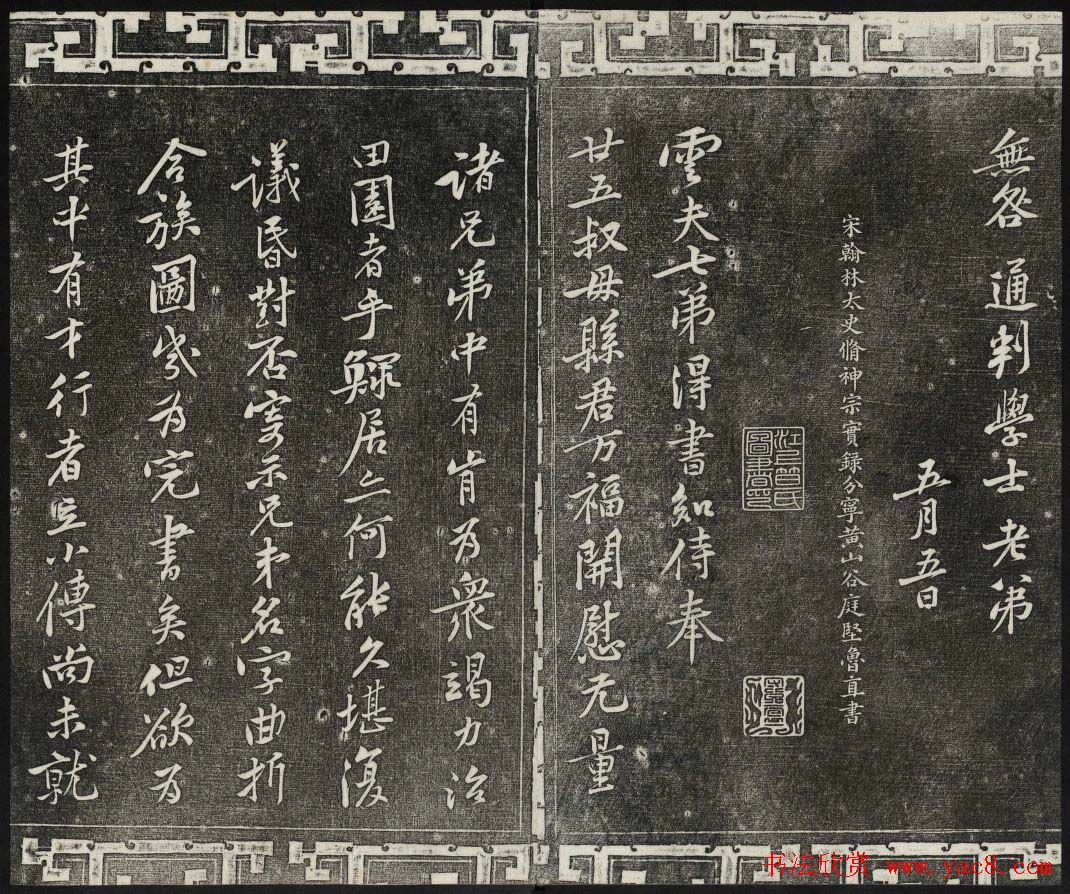 無咎 通判學士老弟
五月五日
宋翰林太史脩神宗實錄分寧黃山谷庭堅魯直書
雲夫七弟得書知侍奉
廿五叔母縣君万福開慰无量
諸兄弟中有肯為衆竭力治
田園者乎鰥居亦何能久堪復
議昏對否寄示兄弟名字曲折
合族圖幾為完書矣但欲為
其中有才行者立小傳尚未就
书法欣赏 www.yac8.com